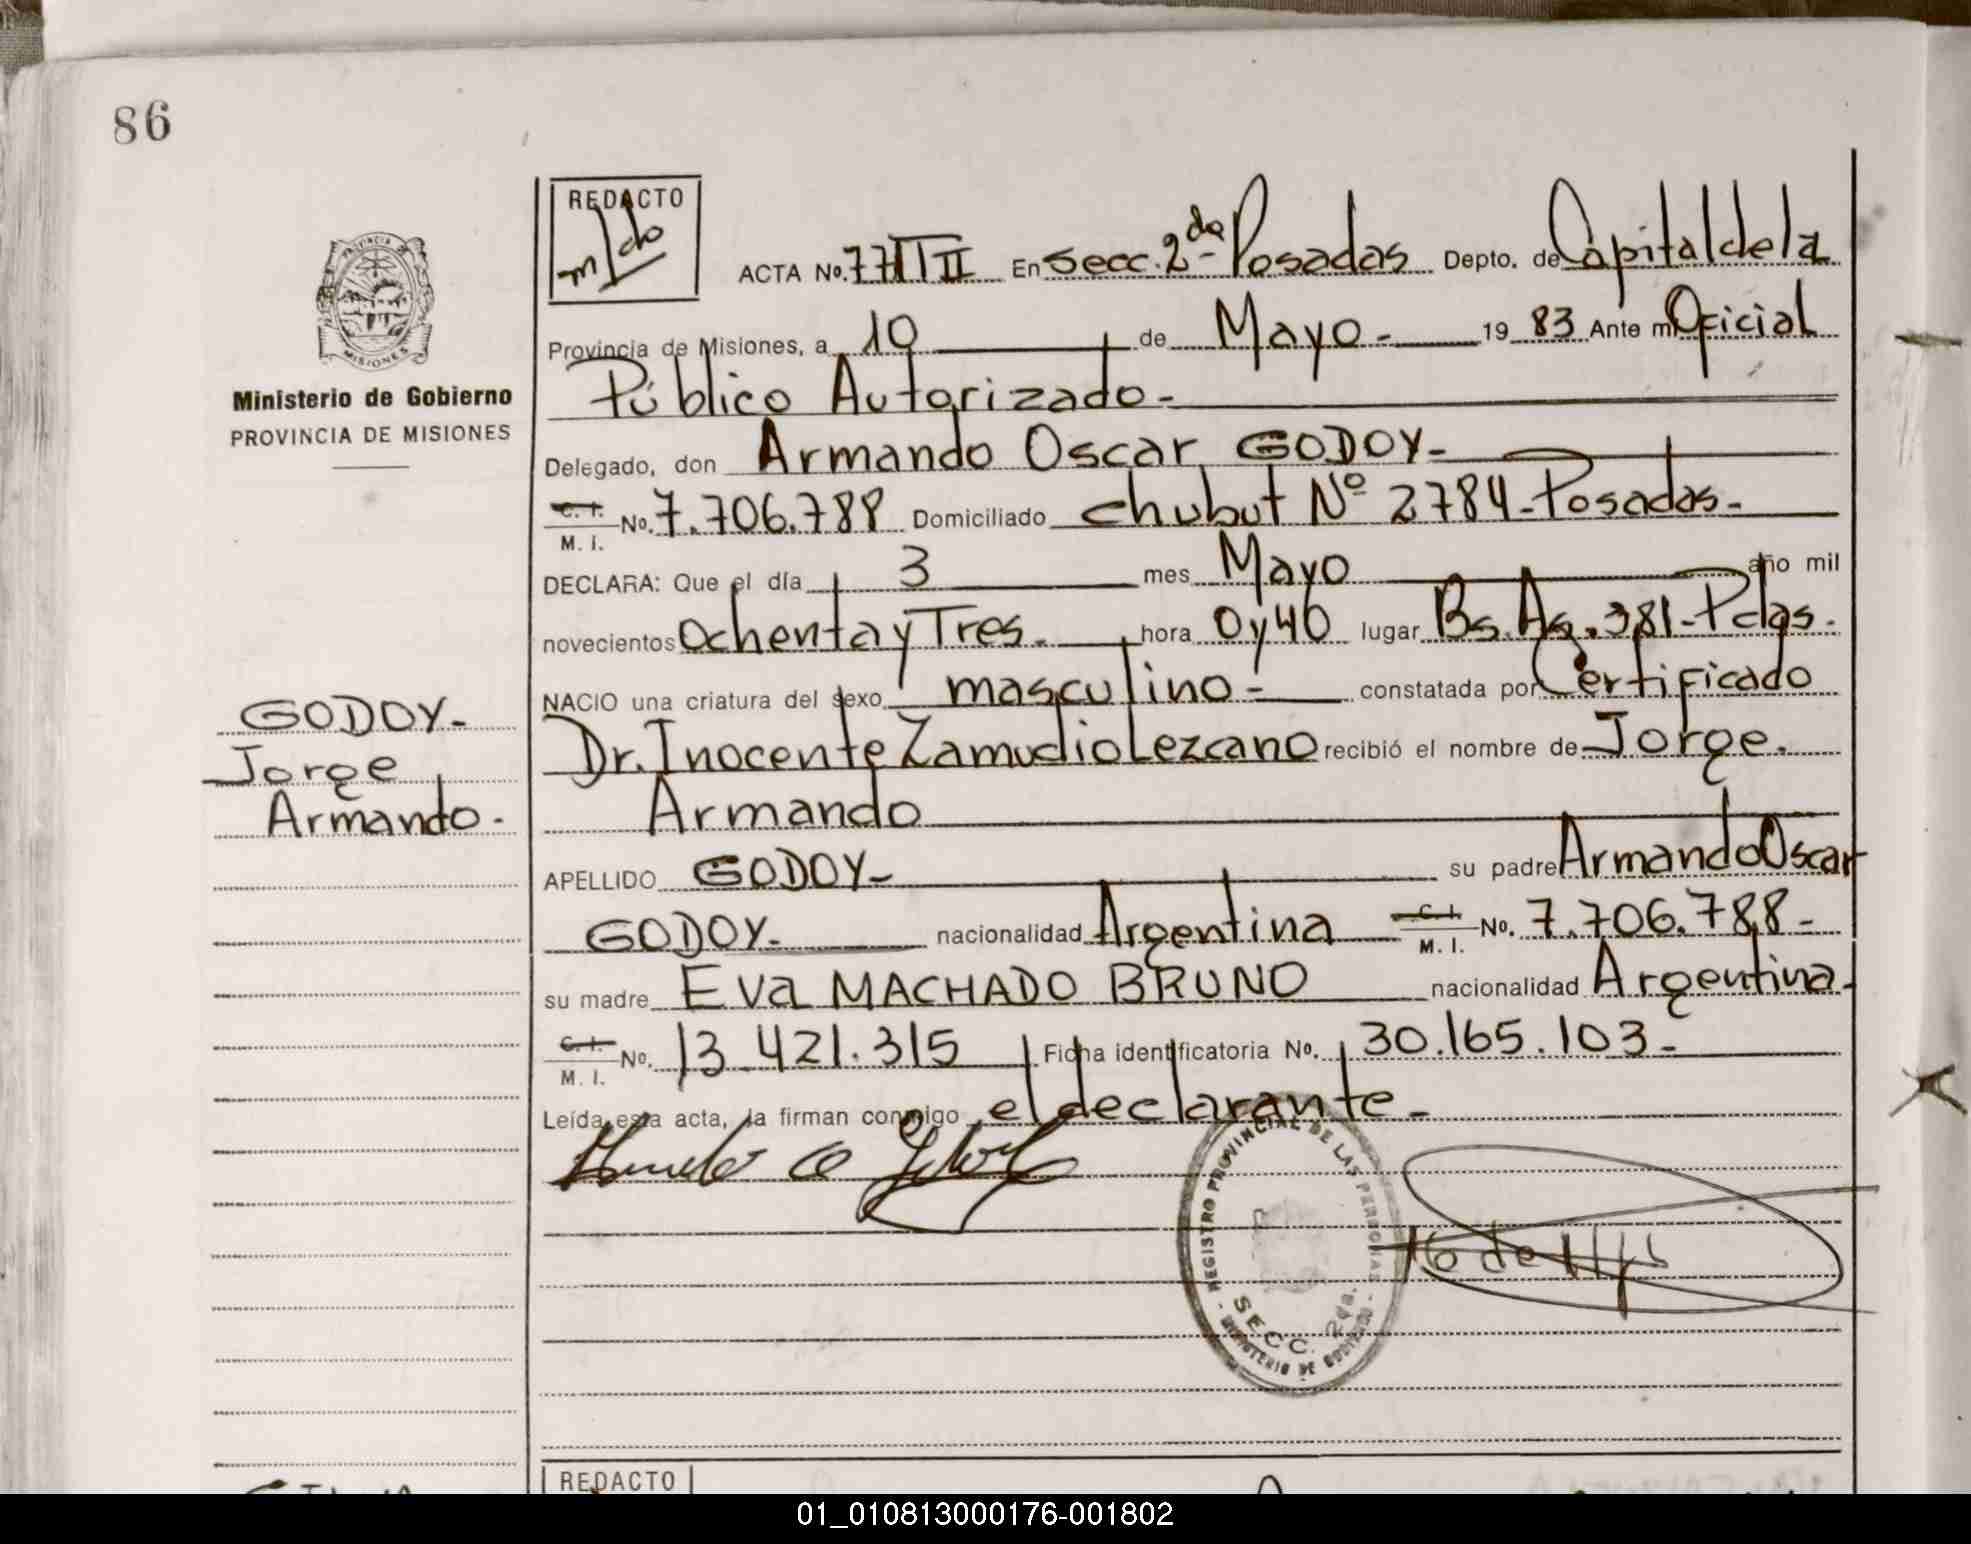 86
REDACTO
ACTA No. 77 III En Secc. 2da Posadas Depto. de Capital de la
Provincia de Misiones, a 10 de Mayo - 19 83 Ante mi Oficial
Público Autorizado -
PROVINCIA DE
MISIONES
Ministerio de Gobierno
PROVINCIA DE MISIONES
Delegado, don Armando Oscar GODOY -
C. I. M. I. No. 7.706.788 Domiciliado chubut Nº 2784 - Posadas -
DECLARA: Que el día 3 mes Mayo año mil
novecientos Ochenta y Tres - hora 0 y 40 lugar Bs. As. 381 - Pdas.
NACIO una criatura del sexo masculino - constatada por Certificado
GODOY -
Jorge
Armando -
Dr. Inocente Zamudio Lezcano recibió el nombre de Jorge
Armando
APELLIDO GODOY - su padre Armando Oscar
GODOY - nacionalidad Argentina C. I. M. I. No. 7.706.788 -
su madre Eva MACHADO BRUNO nacionalidad Argentina -
C. I. M. I. No. 13.421.315 Ficha identificatoria No. 30.165.103 -
Leída esta acta, la firman conmigo el declarante -
REGISTRO PROVINCIAL DE LAS PERSONAS
SECC. 2da.
MINISTERIO DE GOBIERNO
REDACTO
01_010813000176-001802